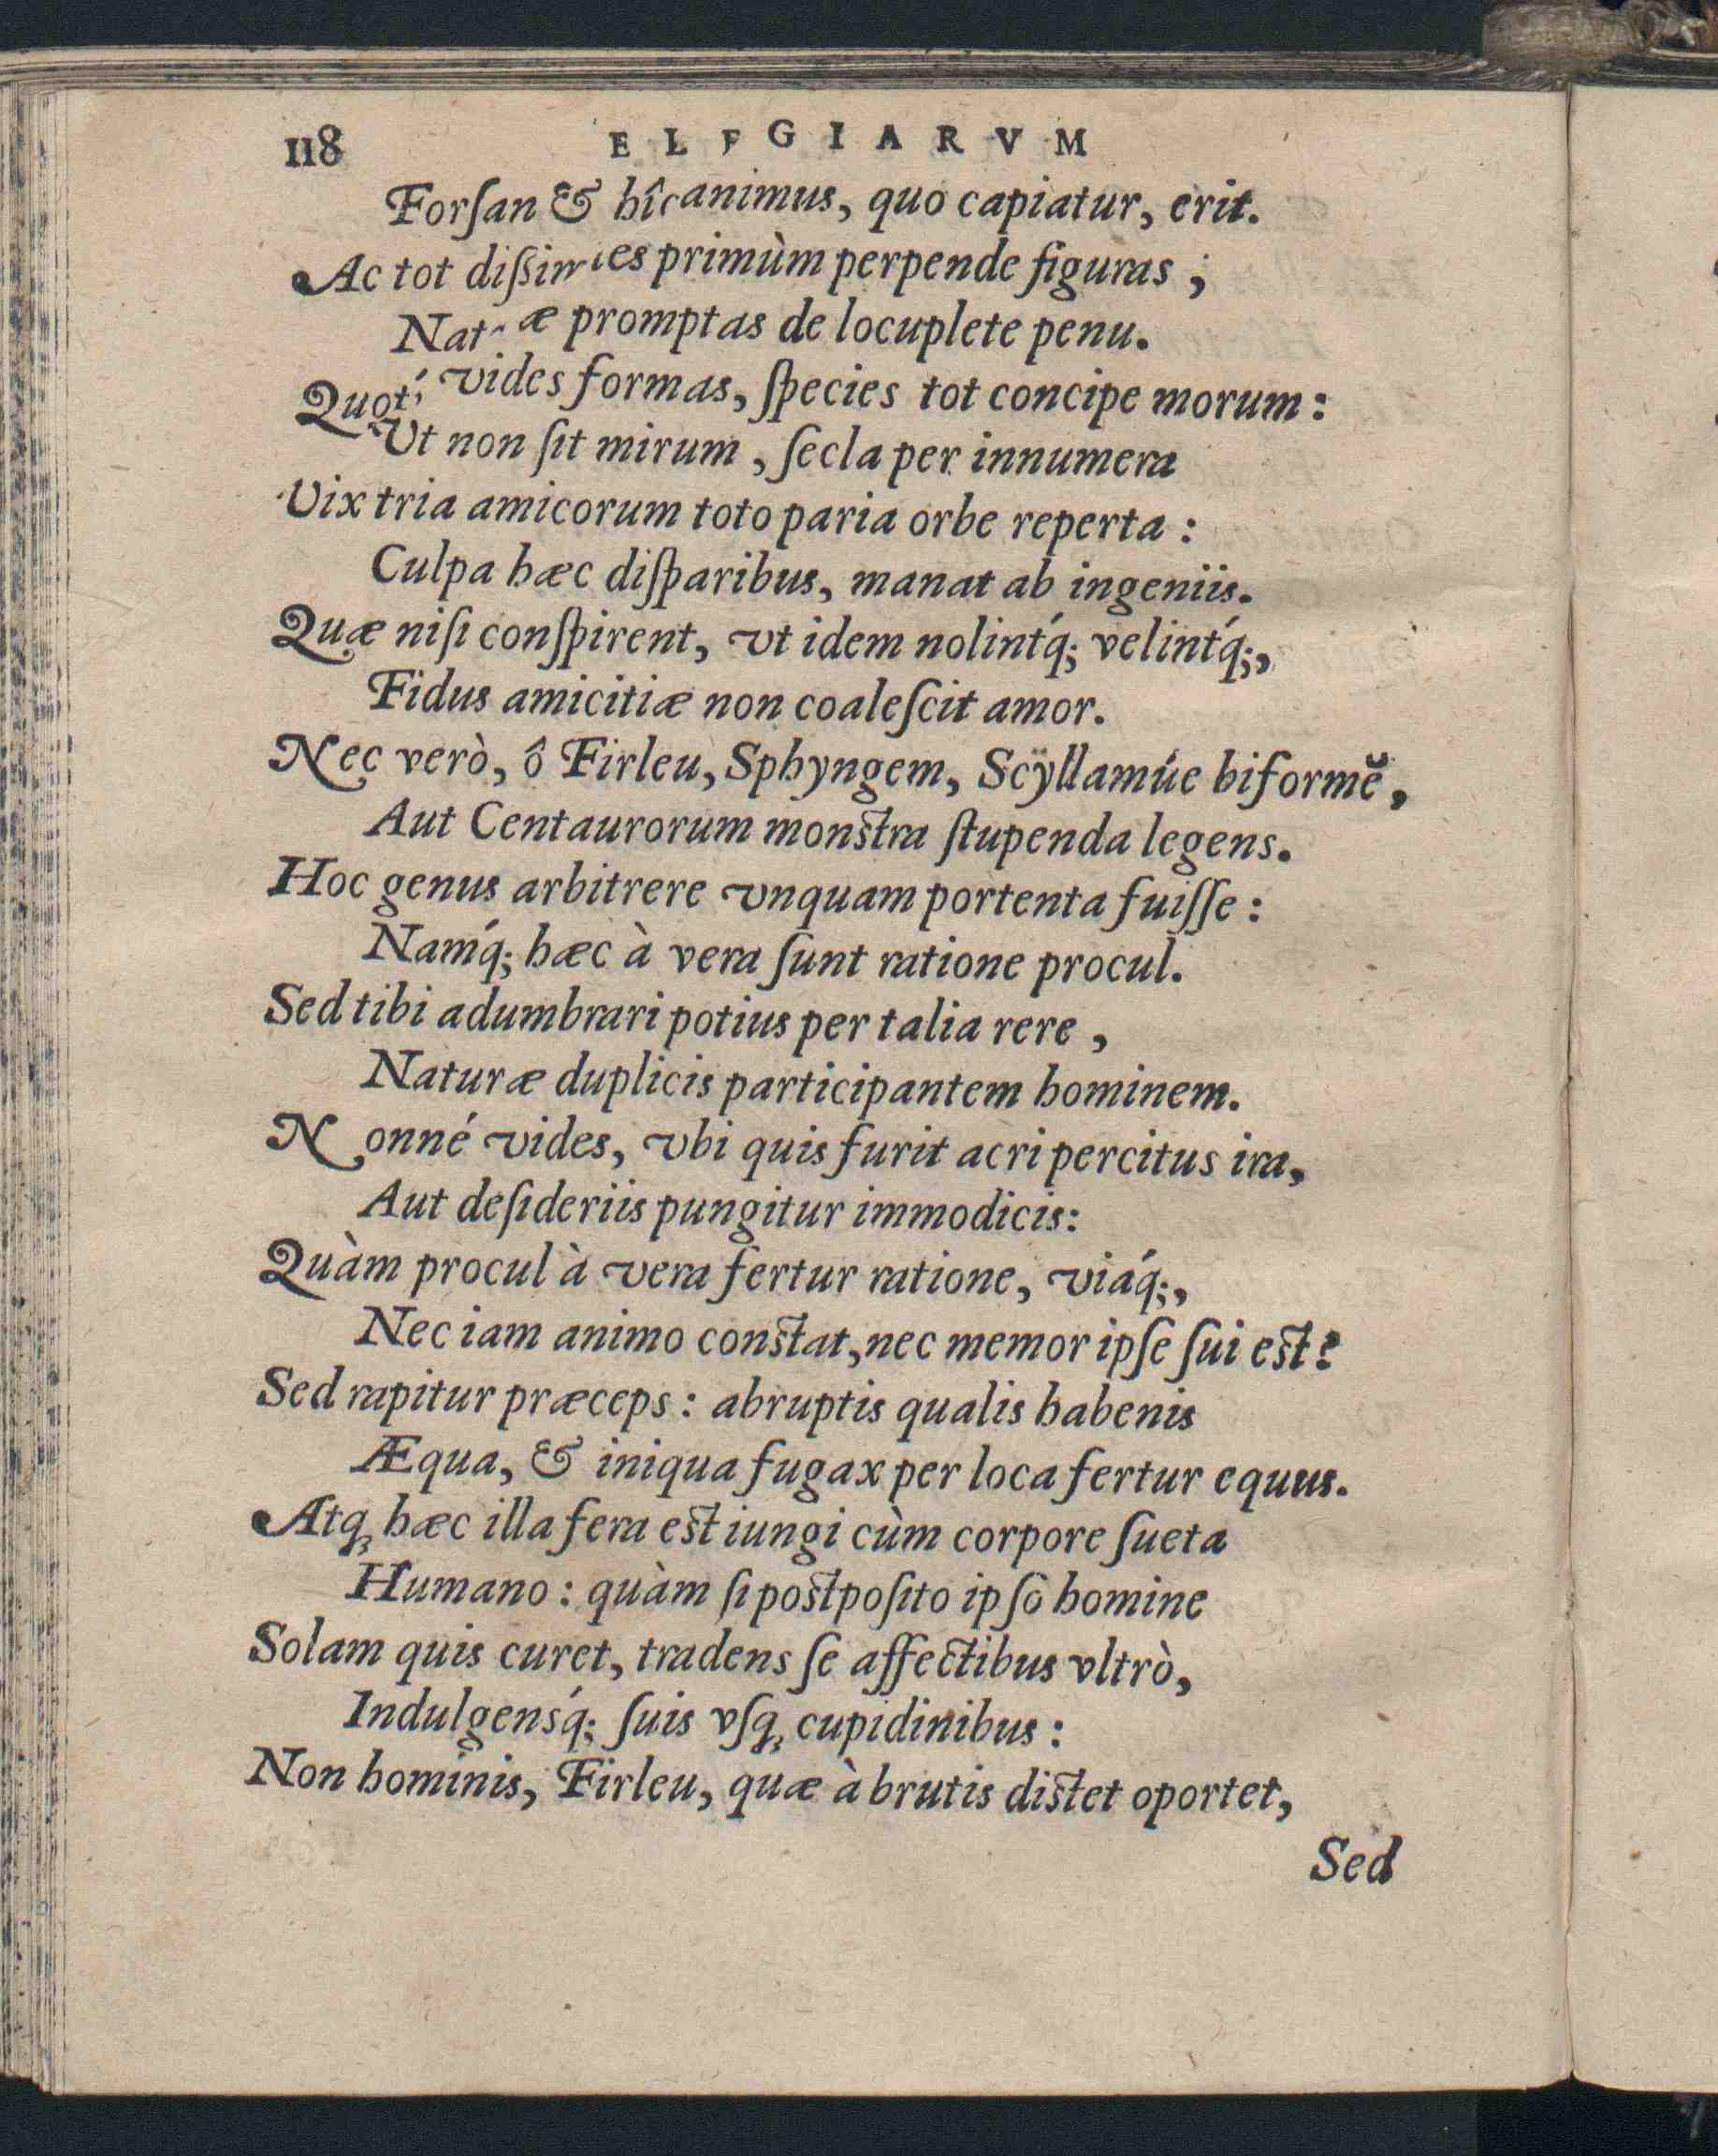 118 ELEGIARVM
Forſan & hîc animus, quo capiatur, erit.
Ac tot primùm perpende figuras ;
promptas de locuplete penu.
vides formas, ſpecies tot concipe morum :
Ut non ſit mirum , ſecla per innumera
Vix tria amicorum toto paria orbe reperta :
Culpa hæc diſparibus, manat ab ingeniis.
Quæ niſi conſpirent, vt idem nolintq́; velintq́;,
Fidus amicitiæ non coaleſcit amor.
Nec verò, ô Firleu, Sphyngem, Scÿllamúe biformĕ,
Aut Centaurorum monſtra ſtupenda legens.
Hoc genus arbitrere vnquam portenta fuiſſe :
Namq́; hæc à vera ſunt ratione procul.
Sed tibi adumbrari potius per talia rere ,
Naturæ duplicis participantem hominem.
Nonné vides, vbi quis furit acri percitus ira,
Aut deſideriis pungitur immodicis:
Quàm procul à vera fertur ratione, viáq́;,
Nec iam animo conſtat, nec memor ipſe ſui eſt?
Sed rapitur præceps : abruptis qualis habenis
Æqua, & iniqua fugax per loca fertur equus.
Atq; hæc illa fera eſt iungi cùm corpore ſueta
Humano : quàm ſi poſtpoſito ipſo homine
Solam quis curet, tradens ſe affectibus vltrò,
Indulgensq́; ſuis vſq; cupidinibus :
Non hominis, Firleu, quæ à brutis diſtet oportet,
Sed